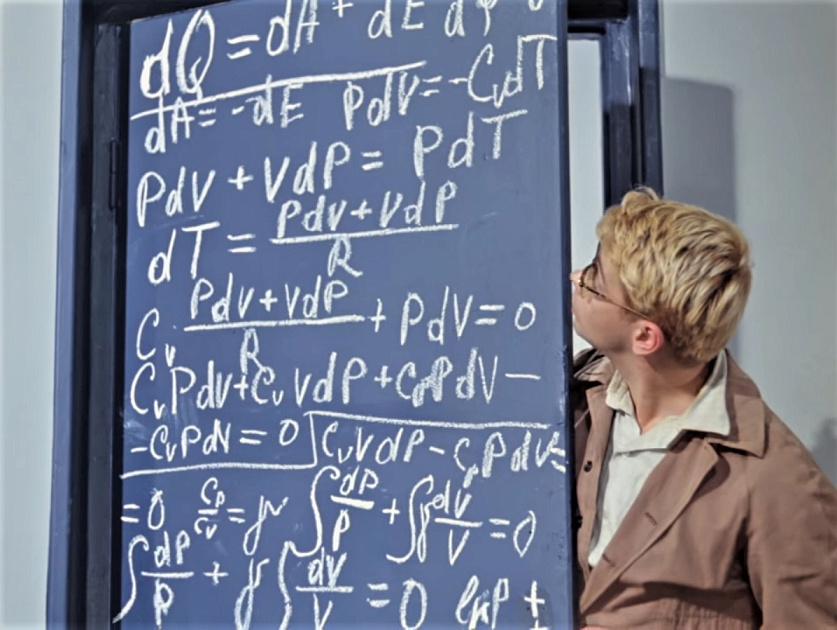 dQ = dA + dE
dA = -dE PdV = -CvdT
PdV + VdP = PdT
dT = PdV + VdP / R
Cv · PdV + VdP / R + PdV = 0
CvPdV + CvVdP + CpPdV -
-CvPdV = 0 CvVdP - CpPdV =
= 0 Cp/Cv = γ ∫ dP/P + ∫γ dV/V = 0
∫ dP/P + γ ∫ dV/V = 0 lnP +